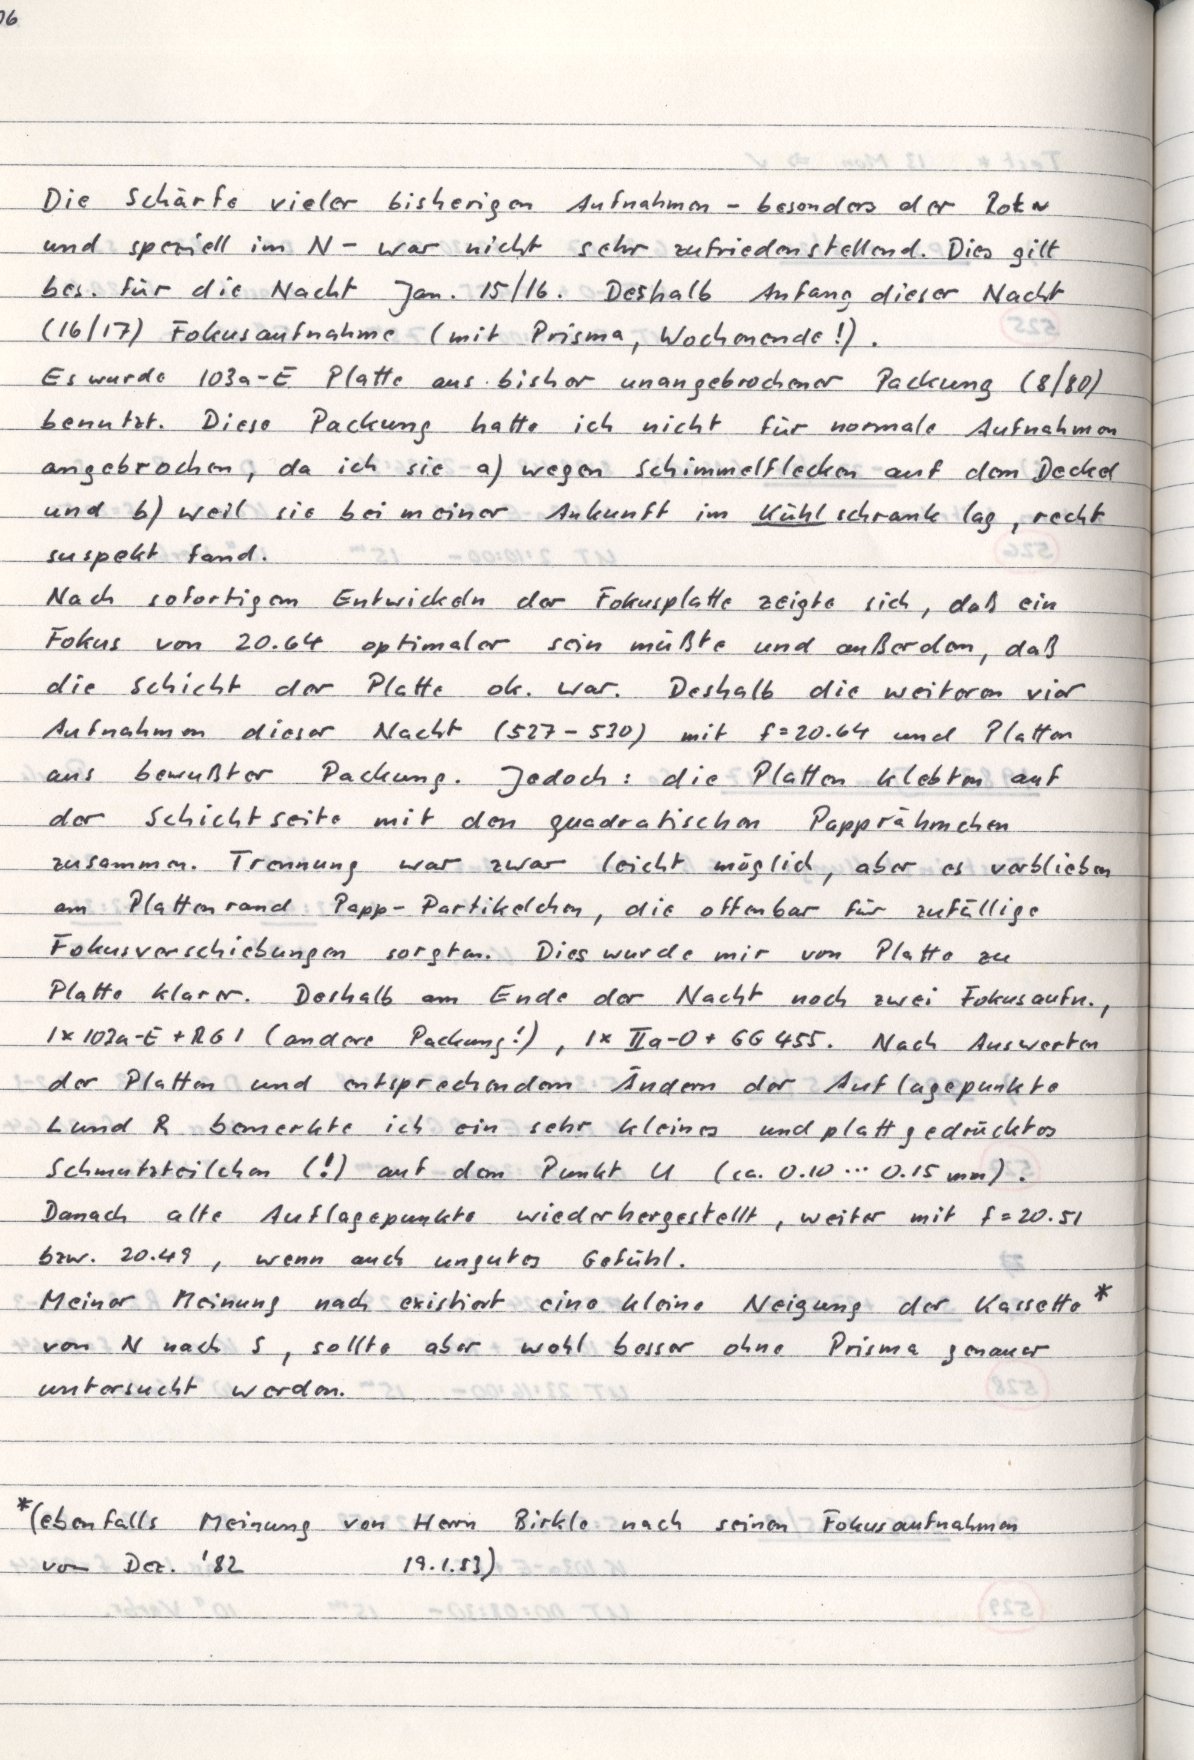 06
Die Schärfe vieler bisherigen Aufnahmen – besonders der Roten
und speziell im N – war nicht sehr zufriedenstellend. Dies gilt
bes. für die Nacht Jan. 15/16. Deshalb Anfang dieser Nacht
(16/17) Fokusaufnahme (mit Prisma, Wochenende!).
Es wurde 103a-E Platte aus bisher unangebrochener Packung (8/80)
benutzt. Diese Packung hatte ich nicht für normale Aufnahmen
angebrochen, da ich sie a) wegen Schimmelflecken auf dem Deckel
und b) weil sie bei meiner Ankunft im Kühlschrank lag, recht
suspekt fand.
Nach sofortigem Entwickeln der Fokusplatte zeigte sich, daß ein
Fokus von 20.64 optimaler sein müßte und außerdem, daß
die Schicht der Platte ok. war. Deshalb die weiteren vier
Aufnahmen dieser Nacht (527 – 530) mit f=20.64 und Platten
aus bewußter Packung. Jedoch: die Platten klebten auf
der Schichtseite mit den quadratischen Papprähmchen
zusammen. Trennung war zwar leicht möglich, aber es verblieben
am Plattenrand Papp-Partikelchen, die offenbar für zufällige
Fokusverschiebungen sorgten. Dies wurde mir von Platte zu
Platte klarer. Deshalb am Ende der Nacht noch zwei Fokusaufn.,
1x103a-E + RG1 (andere Packung!), 1x IIa-O + GG 455. Nach Auswerten
der Platten und entsprechendem Ändern der Auflagepunkte
L und R bemerkte ich ein sehr kleines und plattgedrücktes
Schmutzteilchen (!) auf dem Punkt U (ca. 0.10 ... 0.15 mm).
Danach alte Auflagepunkte wiederhergestellt, weiter mit f=20.51
bzw. 20.49, wenn auch ungutes Gefühl.
Meiner Meinung nach existiert eine kleine Neigung der Kassette *
von N nach S, sollte aber wohl besser ohne Prisma genauer
untersucht werden.
*(ebenfalls Meinung von Herrn Birkle nach seinen Fokusaufnahmen
von Dez. '82 19.1.83)